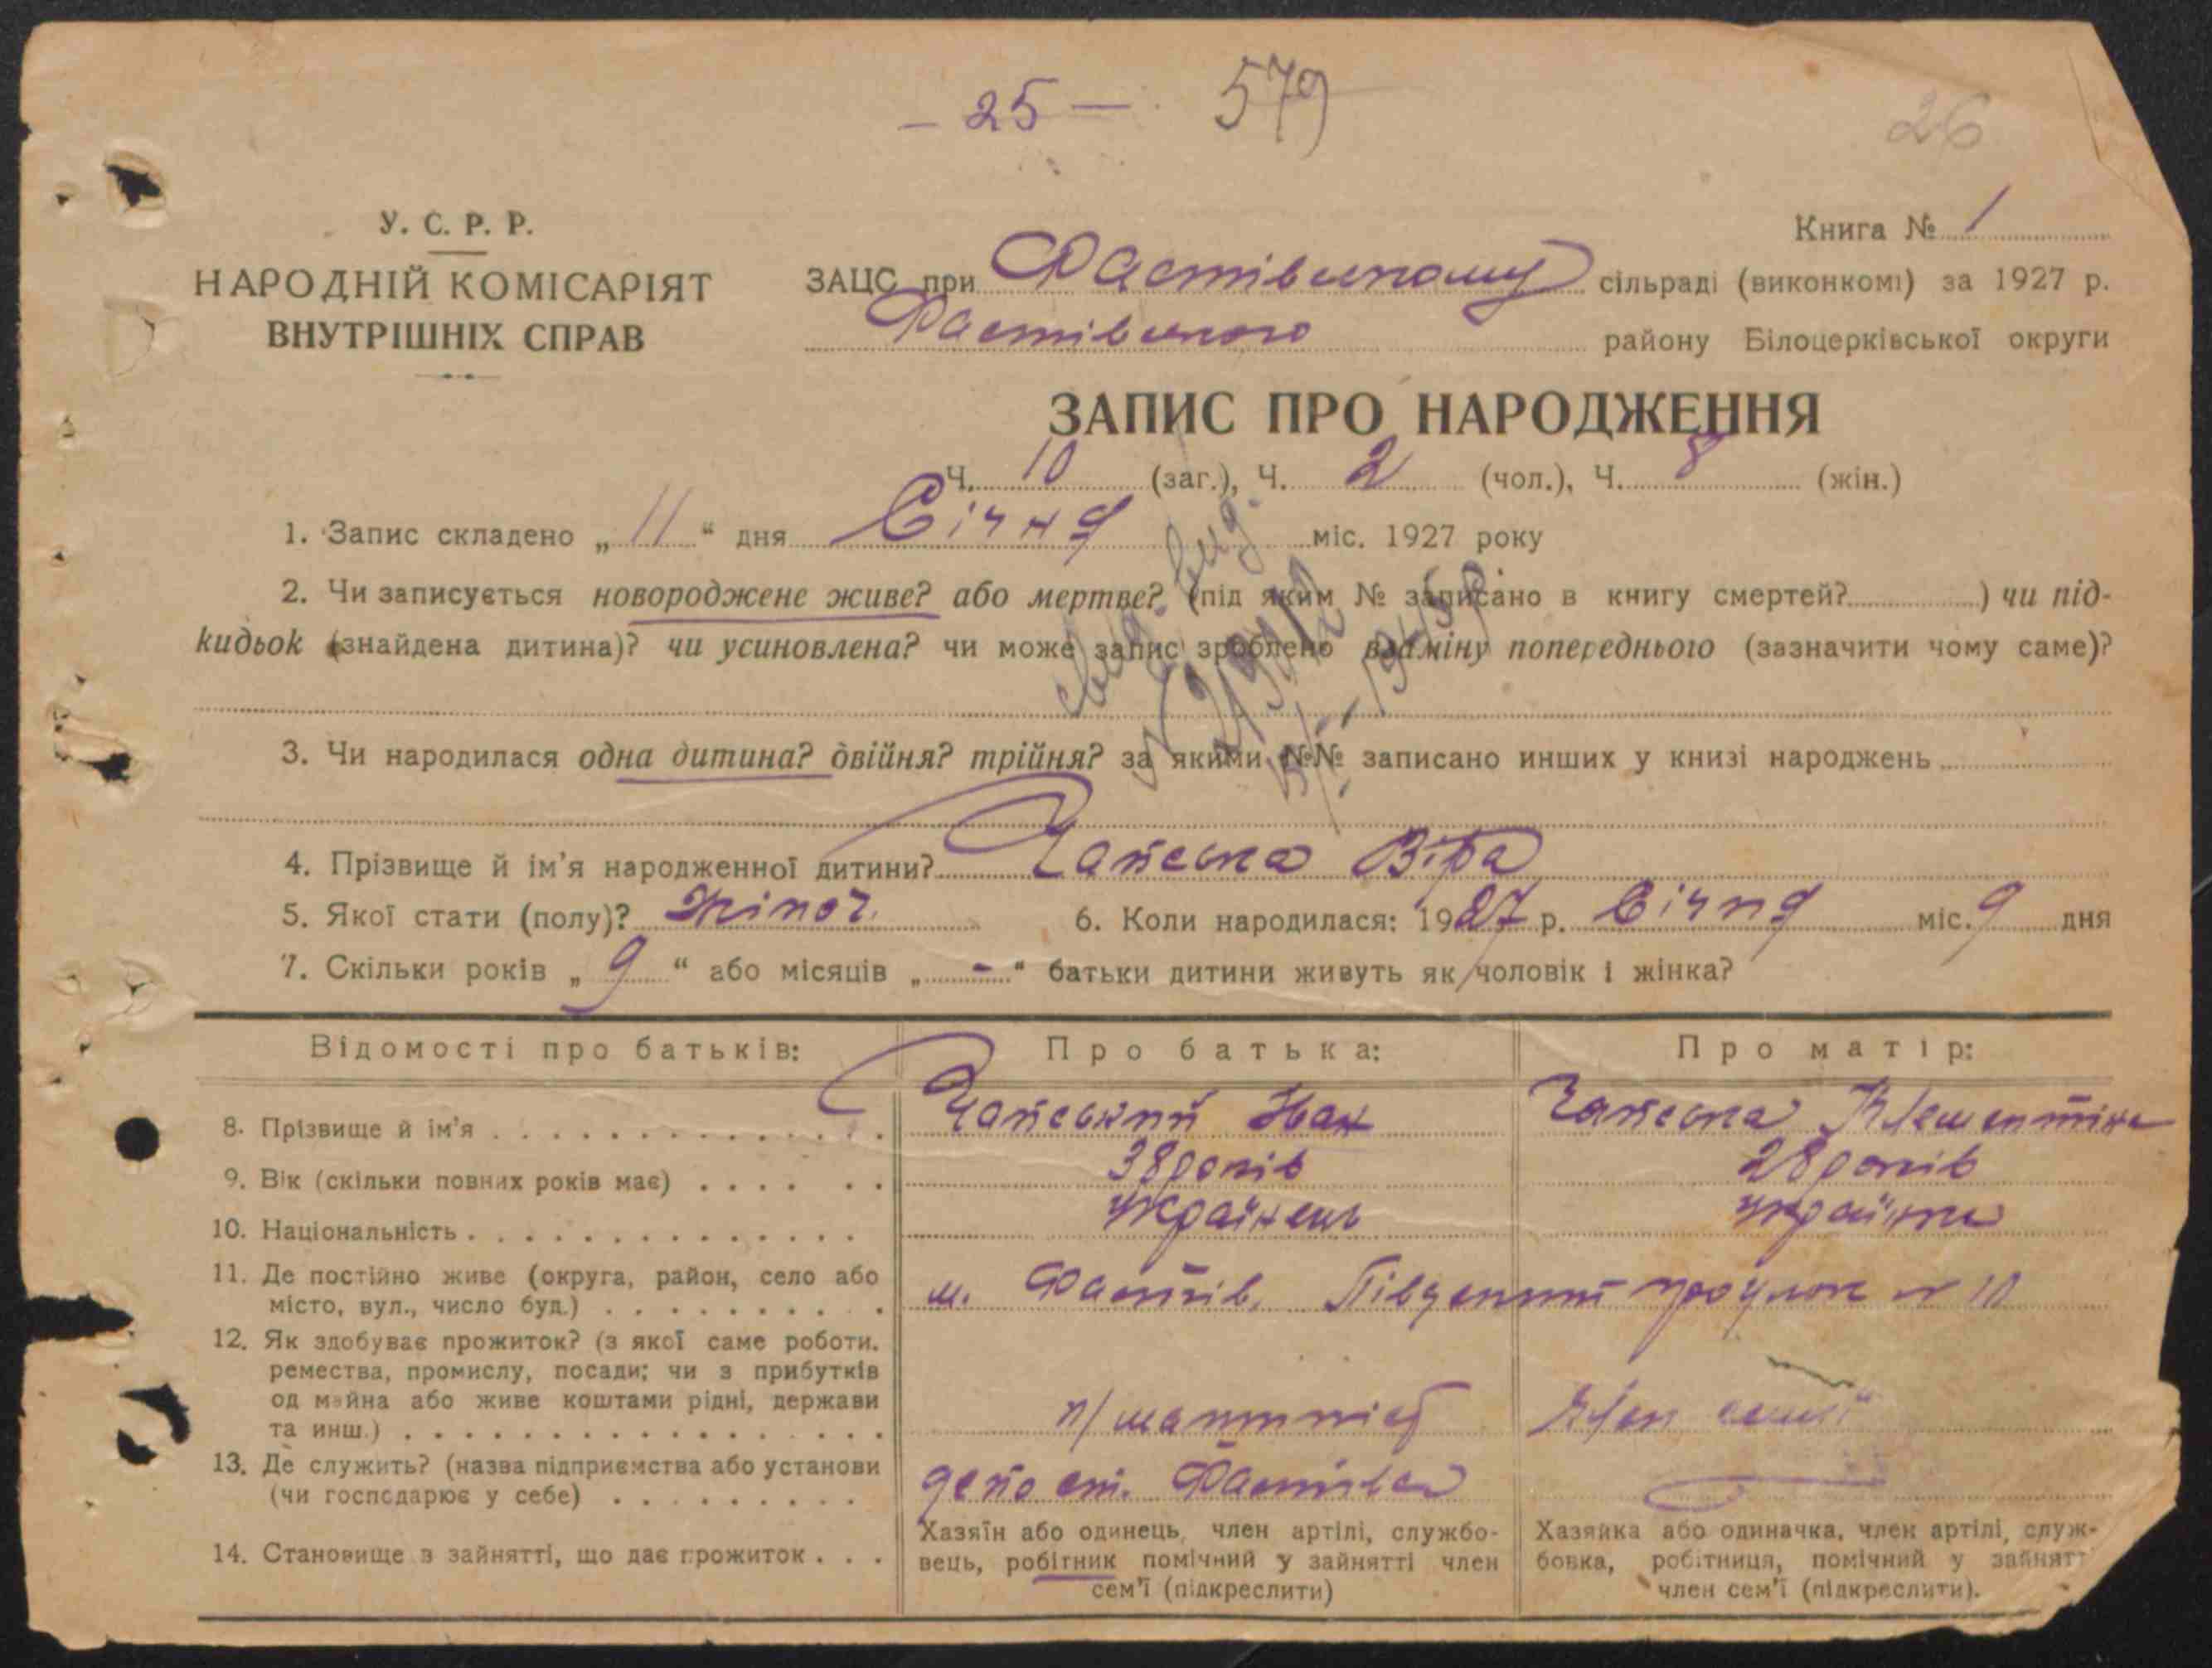 – 25 – 579
26
У. С. Р. Р.
НАРОДНІЙ КОМІСАРІЯТ
ВНУТРІШНІХ СПРАВ
Книга № 1
ЗАЦС при Фастівському сільраді (виконкомі) за 1927 р.
Фастівського району Білоцерківської округи
ЗАПИС ПРО НАРОДЖЕННЯ
Ч. 10 (заг.), Ч. 2 (чол.), Ч. 8 (жін.)
1. Запис складено „ 11 “ дня Січня міс. 1927 року
2. Чи записується новороджене живе? або мертве? (під яким № записано в книгу смертей? ) чи під-
кидьок (знайдена дитина)? чи усиновлена? чи може запис зроблено взаміну попереднього (зазначити чому саме)?
3. Чи народилася одна дитина? двійня? трійня? за якими №№ записано инших у книзі народжень
4. Прізвище й ім'я народженної дитини? Чапська Віра
5. Якої стати (полу)? жіноч. 6. Коли народилася: 1927 р. Січня міс. 9 дня
7. Скільки років „ 9 “ або місяців „ - “ батьки дитини живуть як чоловік і жінка?
Відомості про батьків: Про батька: Про матір:
8. Прізвище й ім'я Чапський Іван Чапська Клементіна
9. Вік (скільки повних років має) 38 років 28 років
10. Національність українець українка
11. Де постійно живе (округа, район, село або
місто, вул., число буд.) м. Фастів, Південний проулок № 10
12. Як здобуває прожиток? (з якої саме роботи,
ремества, промислу, посади; чи з прибутків
од майна або живе коштами рідні, держави
та инш.) п/машиніст Член семьї
13. Де служить? (назва підприємства або установи
(чи господарює у себе) депо ст. Фастів
14. Становище в зайнятті, що дає прожиток
Хазяїн або одинець, член артілі, службо-
вець, робітник помічний у зайнятті член
сем'ї (підкреслити)
Хазяйка або одиначка, член артілі, служ-
бовка, робітниця, помічний у зайнятті
член сем'ї (підкреслити).